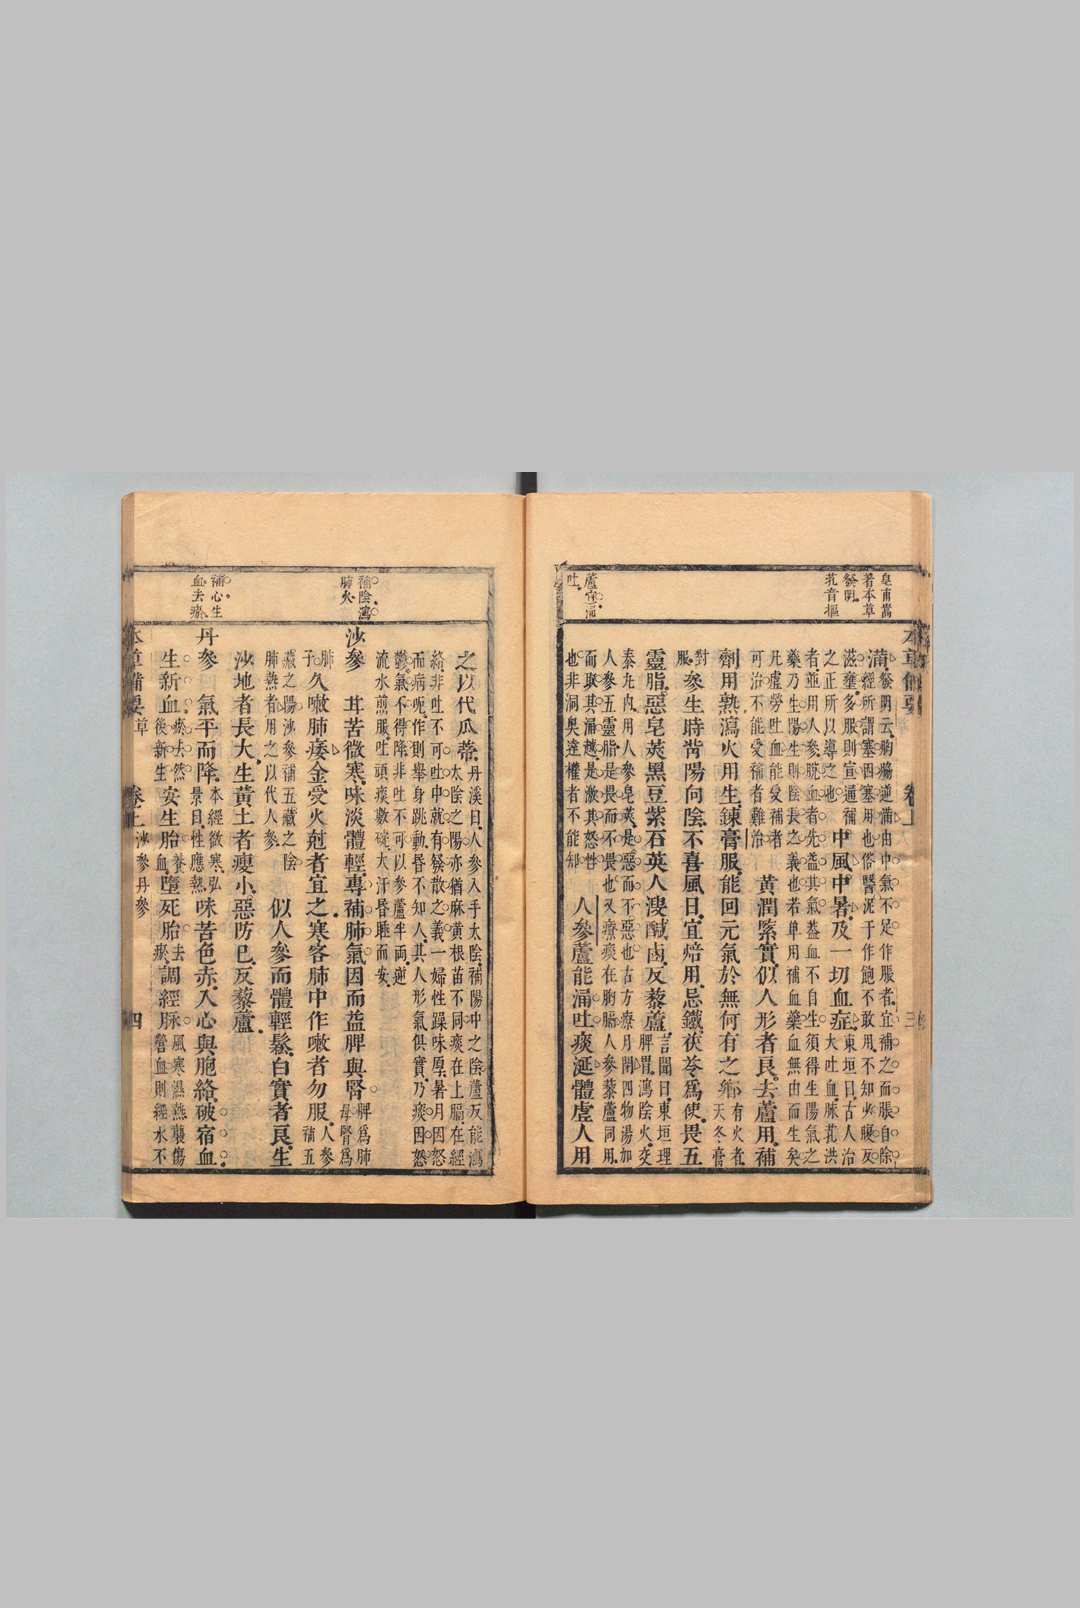 皇甫嵩
著本草
發明
芤音摳
蘆宣涌
吐
本草備要 卷上 三
滿 發明云胸脇逆滿由中氣不足作脹者宜補之而脹自除
經所謂塞因塞用也俗醫泥于作飽不敢用不知少服反
滋壅多服則宣通補
之正所以導之也
中風中暑及一切血症 東垣曰古人治
大吐血脉芤洪
者並用人參脫血者先益其氣葢血不自生須得生陽氣之
藥乃生陽生則陰長之義也若單用補血藥血無由而生矣
凡虛勞吐血能受補者
可治不能受補者難治
黃潤緊實似人形者良去蘆用補
劑用熟瀉火用生鍊膏服能回元氣於無何有之鄉 有火者
天冬膏
對
服
參生時背陽向陰不喜風日宜焙用忌鐵茯苓爲使畏五
靈脂惡皂莢黑豆紫石英人溲鹹鹵反藜蘆 言聞曰東垣理
脾胃瀉陰火交
泰丸內用人參皂莢是惡而不惡也古方療月閉四物湯加
人參五靈脂是畏而不畏也又療痰在胸膈人參藜蘆同用
而取其涌越是激其怒性
也非洞奧達權者不能知
人參蘆能涌吐痰涎體虛人用
補陰瀉
肺火
補心生
血去瘀
之以代瓜蔕 丹溪曰人參入手太陰補陽中之陰蘆反能瀉
太陰之陽亦猶麻黃根苗不同痰在上膈在經
絡非吐不可吐中就有發散之義一婦性躁味厚暑月因怒
而病呃作則舉身跳動昏不知人其人形氣俱實乃痰因怒
鬱氣不得降非吐不可以參蘆半兩逆
流水煎服吐頑痰數碗大汗昏睡而安
沙參 甘苦微寒味淡體輕專補肺氣因而益脾與腎 脾爲肺
母腎爲
肺
子
久嗽肺痿金受火尅者宜之寒客肺中作嗽者勿服 人參
補五
藏之陽沙參補五藏之陰
肺熱者用之以代人參
似人參而體輕鬆白實者良生
沙地者長大生黃土者瘦小惡防已反藜蘆
丹參 氣平而降 本經微寒弘
景曰性應熱
味苦色赤入心與胞絡破宿血
生新血 瘀去然
後新生
安生胎 養
血
墮死胎 去
瘀
調經脉 風寒濕熱襲傷
營血則經水不
本草備要 草 卷上 沙參丹參 四